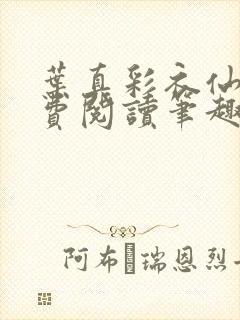 葉真彩衣仙
費閱讀筆趣
阿布·瑞恩烈